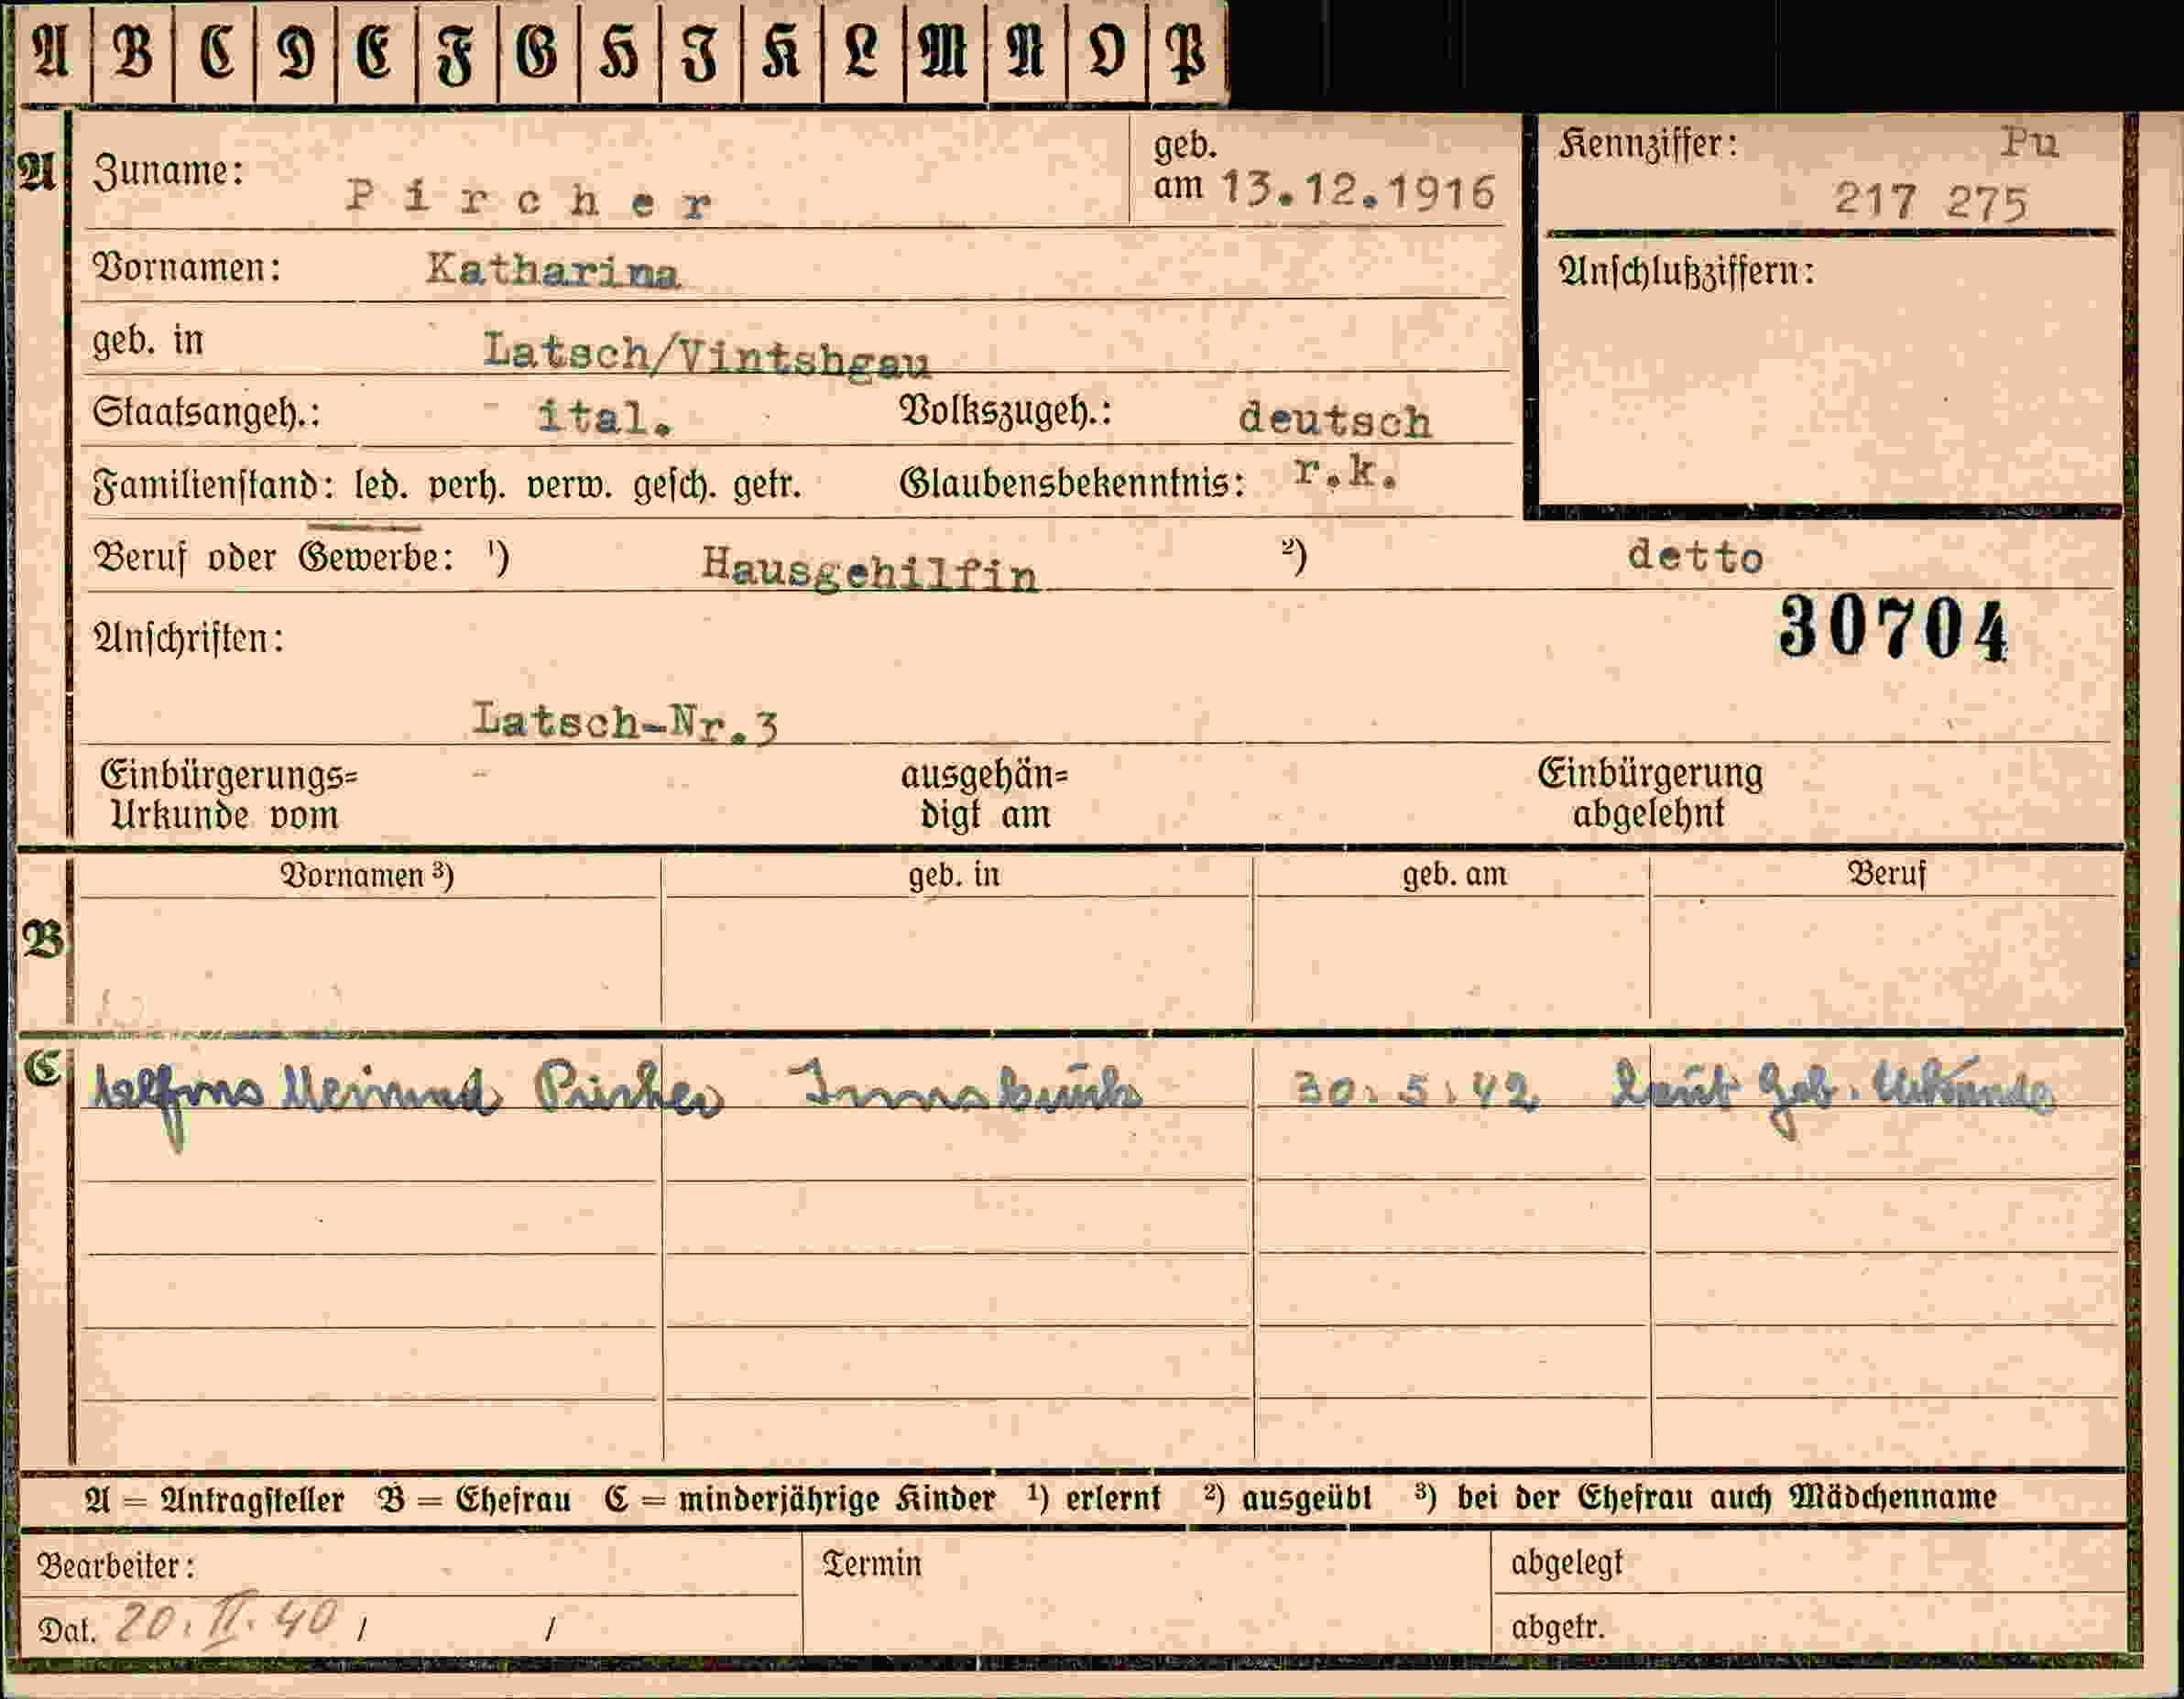 A B C D E F G H I K L M N O P
A Zuname: Pircher geb. am 13.12.1916 Kennziffer: Pu 217 275
Vornamen: Katharina Anschlußziffern:
geb. in Latsch/Vintshgau
Staatsangeh.: ital. Volkszugeh.: deutsch
Familienstand: led. verh. verw. gesch. getr. Glaubensbekenntnis: r.k.
Beruf oder Gewerbe: ¹) Hausgehilfin ²) detto
Anschriften: 30704
Latsch-Nr.3
Einbürgerungs= ausgehän= Einbürgerung
Urkunde vom digt am abgelehnt
Vornamen ³) geb. in geb. am Beruf
B
C Pircher Innsbruck 30.5.42 laut Geb. Urkunde
A = Antragsteller B = Ehefrau C = minderjährige Kinder ¹) erlernt ²) ausgeübt ³) bei der Ehefrau auch Mädchenname
Bearbeiter: Termin abgelegt
Dat. 20.II.40 / / abgetr.